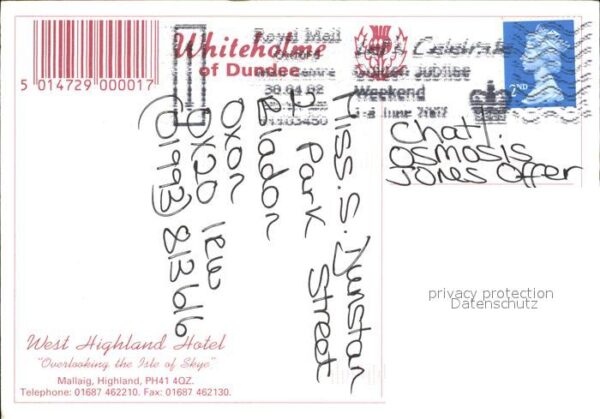 5 014729 000017
Whiteholme
of Dundee
Royal Mail
30.04.02
Let's Celebrate
Golden Jubilee
Weekend
1-4 June 2002
2ND
Chat!
OSMOSIS
JONES Offer
MISS. S. Dunston
2 PARK Street
Bladon
OXON
OX20 1RW
(01993) 813616
privacy protection
Datenschutz
West Highland Hotel
"Overlooking the Isle of Skye"
Mallaig, Highland, PH41 4QZ.
Telephone: 01687 462210. Fax: 01687 462130.